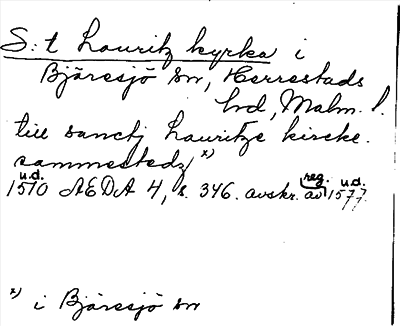 S:t Lauritz kyrka i
Bjäresjö sn, Herrestads
hd, Malm. l.
till sanctj Lauritze kircke.
sammestedz x)
u.d. reg. u.d.
1510 AEDA 4, s. 346. avskr. av 1577.
x) i Bjäresjö sn